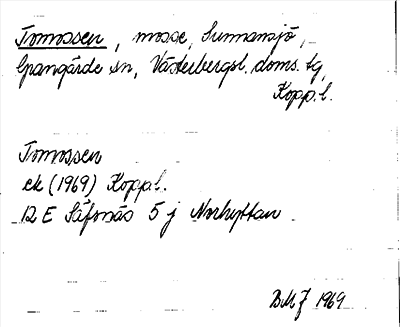 Tomossen, mosse, Sunnansjö,
Grangärde sn, Västerbergsl. doms. tg,
Kopp. l.
Tomossen
ek (1969) Kopp. l.
12 E Säfsnäs 5 j Norhyttan
BMJ 1969